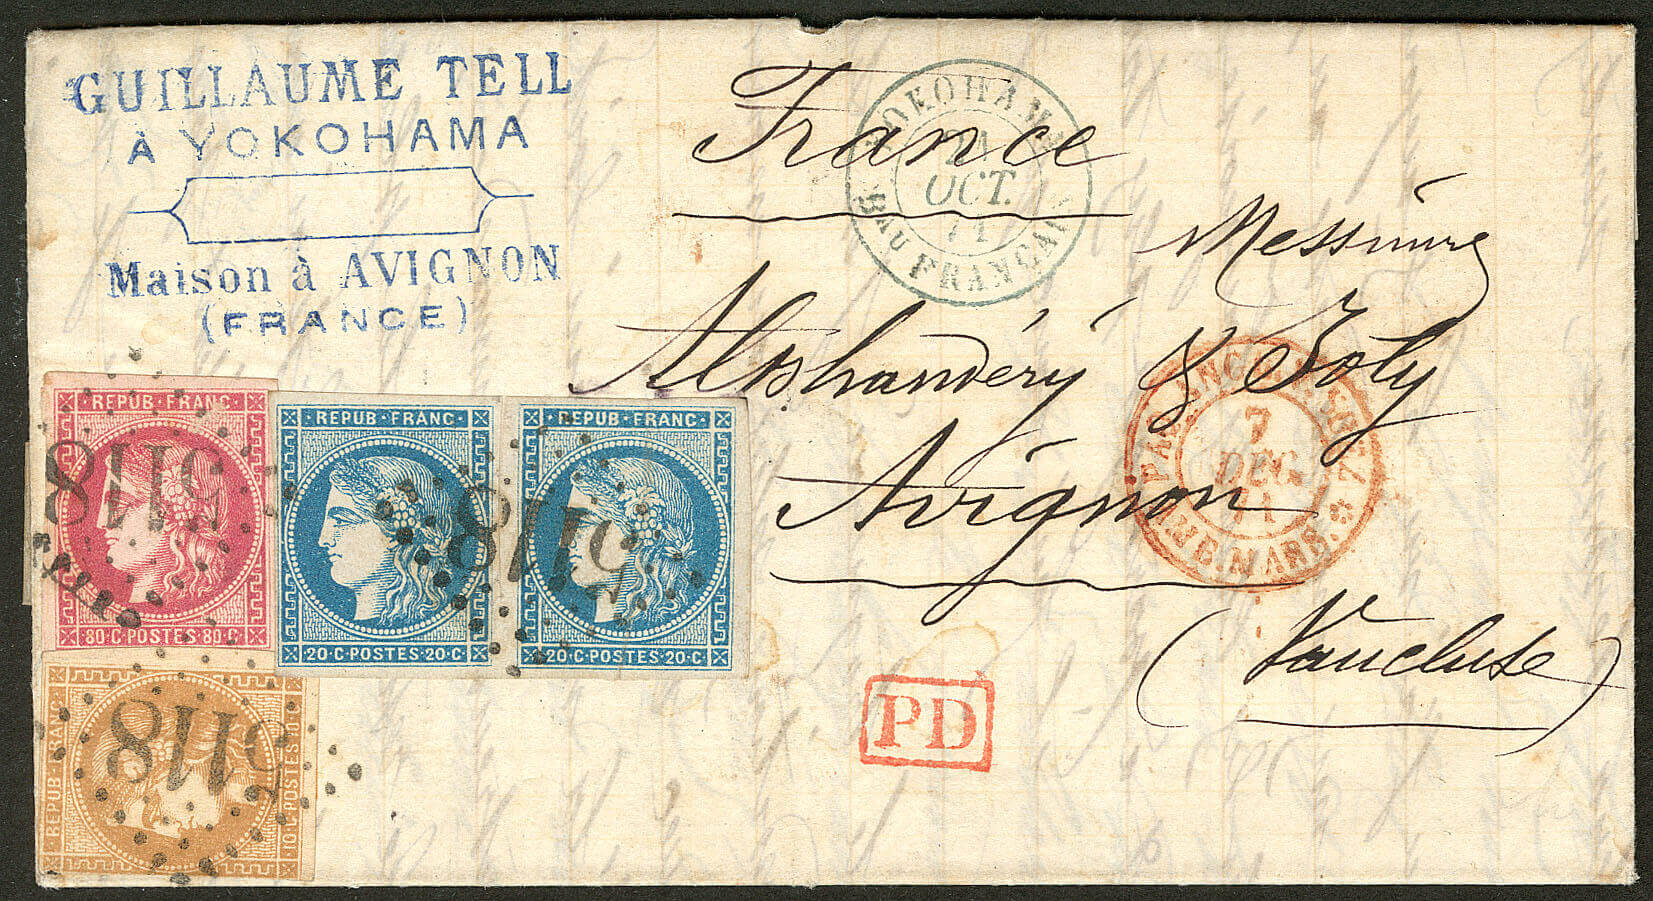 GUILLAUME TELL
À YOKOHAMA
Maison à AVIGNON
(FRANCE)
France
YOKOHAMA
24
OCT.
71
BAU FRANÇAIS
Messieurs
Alphandéry & Joly
Avignon
(Vaucluse)
7
DEC
71
PAQ. ANG. V. SUEZ
AMB. MARS.
PD
REPUB·FRANC·
80·C·POSTES·80·C·
5118
REPUB·FRANC·
20·C·POSTES·20·C·
REPUB·FRANC·
20·C·POSTES·20·C·
5118
REPUB·FRANC·
10·C·POSTES·10·C·
5118